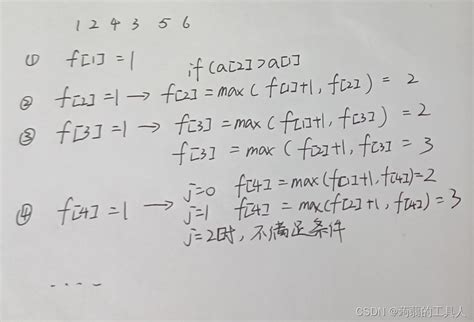 1 2 4 3 5 6
① f[1]=1 if(a[2]>a[1]
② f[2]=1→f[2]=max(f[1]+1,f[2])=2
③ f[3]=1→f[3]=max(f[1]+1,f[3])=2
f[3]=max(f[2]+1,f[3]=3
j=0 f[4]=max(f[1]+1,f[4])=2
④ f[4]=1→j=1 f[4]=max(f[2]+1,f[4])=3
j=2时,不满足条件
....
CSDN @蒟蒻的工具人